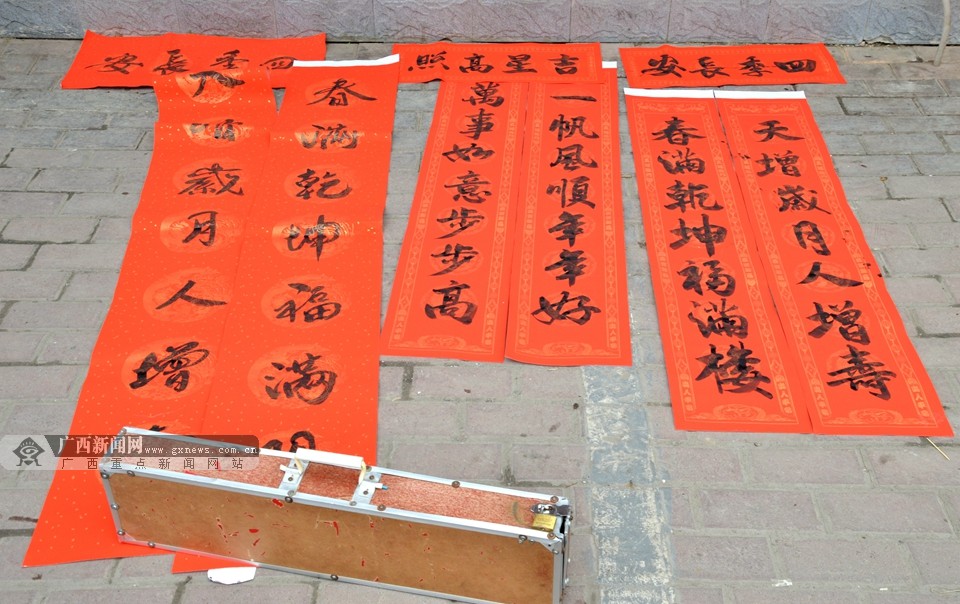 四季長安
吉星高照
四季長安
天增歲月人增壽
春滿乾坤福滿
春滿乾坤福滿樓
天增歲月人增壽
一帆風順年年好
萬事如意步步高
广西新闻网 www.gxnews.com.cn
广西重点新闻网站